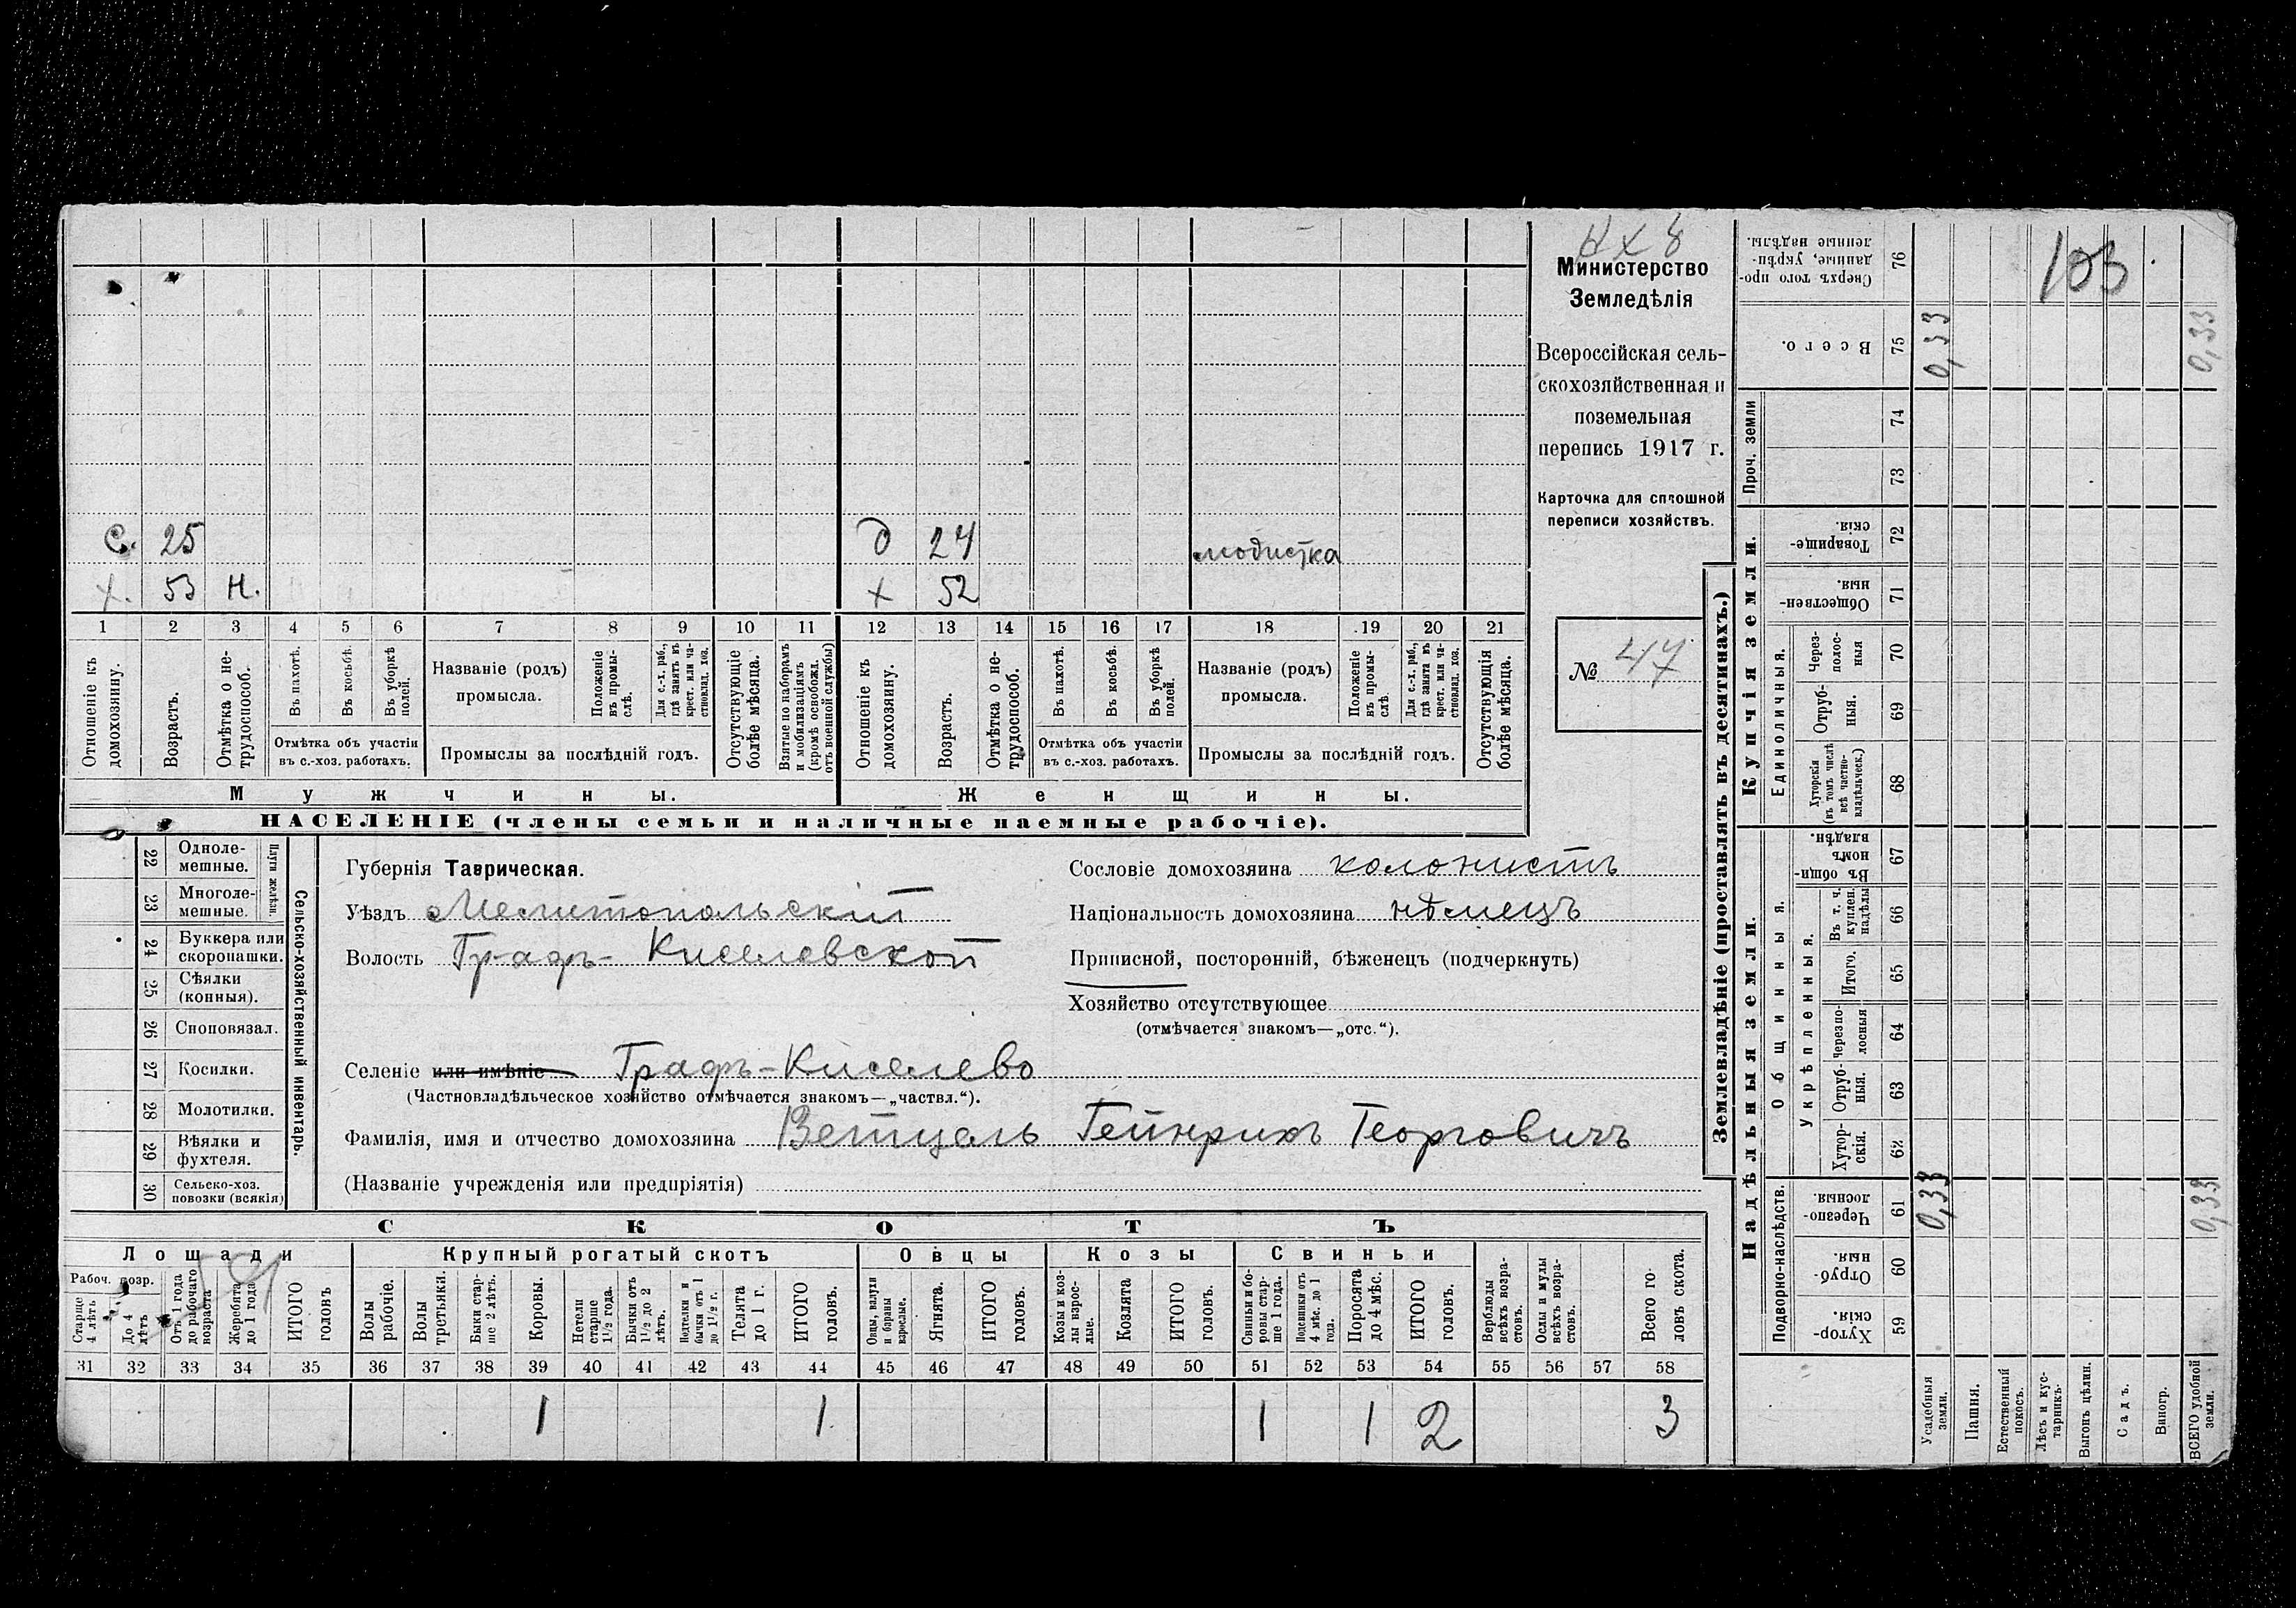 нхв
Министерство
Земледѣлія
Всероссійская сель-
скохозяйственная и
поземельная
перепись 1917 г.
Карточка для сплошной
переписи хозяйствъ.
№ 47
С. 25
х. 53 н.
д 24 модистка
х 52
1 2 3 4 5 6 7 8 9 10 11 12 13 14 15 16 17 18 19 20 21
Отношеніе къ домохозяину.
Возрастъ.
Отмѣтка о не-трудоспособ.
Въ пахотѣ.
Въ косьбѣ.
Въ уборкѣ полей.
Отмѣтка объ участіи
въ с.-хоз. работахъ.
Названіе (родъ)
промысла.
Положеніе въ промы-слѣ.
Для с.-х. раб., гдѣ занятъ въ крест. или ча-стновлад. хоз.
Промыслы за послѣдній годъ.
Отсутствующіе болѣе мѣсяца.
Взятые по наборамъ и мобилизаціямъ (кромѣ освобожд. отъ военной службы)
Отношеніе къ домохозяину.
Возрастъ.
Отмѣтка о не-трудоспособ.
Въ пахотѣ.
Въ косьбѣ.
Въ уборкѣ полей.
Отмѣтка объ участіи
въ с.-хоз. работахъ.
Названіе (родъ)
промысла.
Положеніе въ промы-слѣ.
Для с.-х. раб., гдѣ занята въ крест. или ча-стновлад. хоз.
Промыслы за послѣдній годъ.
Отсутствующія болѣе мѣсяца.
Мужчины.
Женщины.
НАСЕЛЕНІЕ (члены семьи и наличные наемные рабочіе).
22 Одноле-мешные.
23 Многоле-мешные.
Плуги желѣзн.
24 Буккера или скоропашки.
25 Сѣялки (конныя).
26 Сноповязал.
27 Косилки.
28 Молотилки.
29 Вѣялки и фухтеля.
30 Сельско-хоз. повозки (всякія)
Сельско-хозяйственный инвентарь.
Губернія Таврическая.
Уѣздъ Мелитопольскій
Волость Графъ-Киселевской
Сословіе домохозяина колонистъ
Національность домохозяина нѣмецъ
Приписной, посторонній, бѣженецъ (подчеркнуть)
Хозяйство отсутствующее
(отмѣчается знакомъ—„отс.“).
Селеніе или имѣніе Графъ-Киселево
(Частновладѣльческое хозяйство отмѣчается знакомъ—„частвл.“).
Фамилія, имя и отчество домохозяина Ветцель Гейнрихъ Георговичъ
(Названіе учрежденія или предпріятія)
СКОТЪ
Лошади
Крупный рогатый скотъ
Овцы
Козы
Свиньи
Рабоч. возр.
Старше 4 лѣтъ
До 4 лѣтъ
Отъ 1 года до рабочаго возраста
Жеребята до 1 года
ИТОГО головъ
Волы рабочіе.
Волы третьяки.
Быки стар-ше 2 лѣтъ.
Коровы.
Нетели старше 1½ года.
Бычки отъ 1½ до 2 лѣтъ.
Подтелки и бычки отъ 1 до 1½ г.
Телята до 1 г.
ИТОГО головъ.
Овцы, валухи и бараны взрослые.
Ягнята.
ИТОГО головъ.
Козы и коз-лы взрос-лые.
Козлята
ИТОГО головъ.
Свиньи и бо-ровы стар-ше 1 года.
Подсвинки отъ 4 мѣс. до 1 года.
Поросята до 4 мѣс.
ИТОГО головъ.
Верблюды всѣхъ возра-стовъ.
Ослы и мулы всѣхъ возра-стовъ.
Всего го-ловъ скота.
31 32 33 34 35 36 37 38 39 40 41 42 43 44 45 46 47 48 49 50 51 52 53 54 55 56 57 58
1 1 1 1 2 3
Землевладѣніе (проставлять въ десятинахъ.)
Купчія земли.
Надѣльныя земли.
Сверхъ того про-данные, укрѣп-ленные надѣлы. 76
103
Всего. 75 0,33 0,33
Проч. земли
74
73
Товарище-скія. 72
Обществен-ныя. 71
Единоличныя.
Через-полос-ныя 70
Отруб-ныя. 69
Хуторскія (въ томъ числѣ всѣ частно-владѣльческ.) 68
Общинныя.
Въ общи-номъ владѣн. 67
Укрѣпленныя.
Въ т. ч. куплен. надѣлы 66
Итого. 65
Черезпо-лосныя 64
Отруб-ныя. 63
Хутор-скія. 62
Подворно-наслѣдств.
Черезпо-лосныя. 61 0,33 0,33
Отруб-ныя. 60
Хутор-скія. 59
Усадебныя земли.
Пашня.
Естественный покосъ.
Лѣсъ и кус-тарникъ.
Выгонъ цѣлин.
Садъ.
Виногр.
ВСЕГО удобной земли.